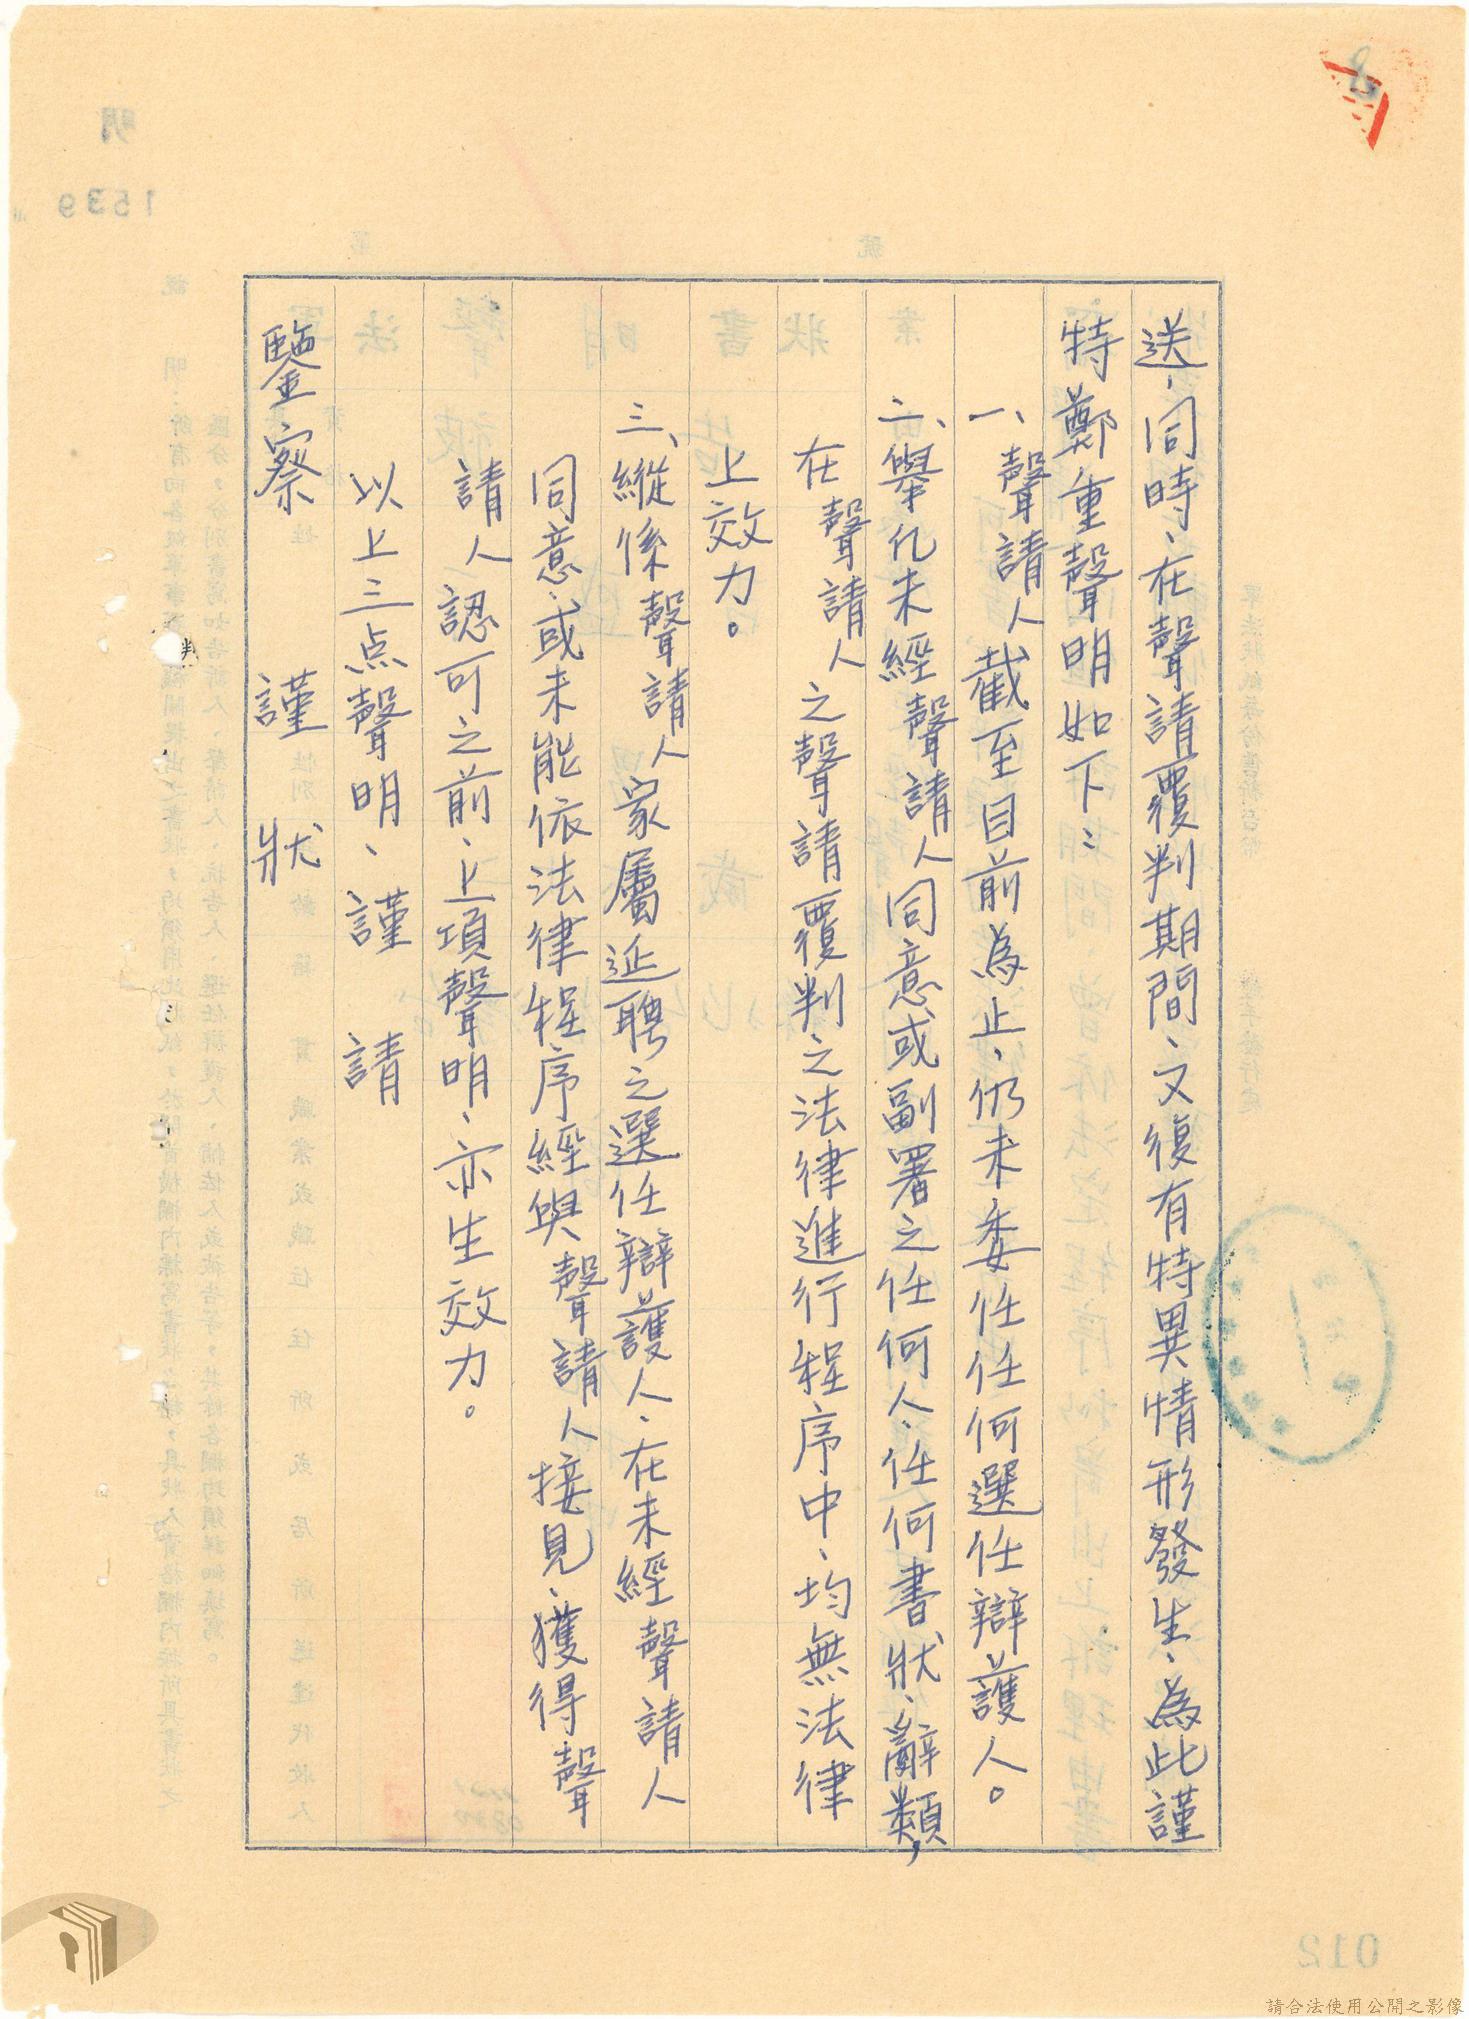 送，同時、在聲請覆判期間、又復有特異情形發生、為此謹
特鄭重聲明如下：
一、聲請人截至目前為止，仍未委任任何選任辯護人。
二、舉凡未經聲請人同意或副署之任何人、任何書狀、辭類，
在聲請人之聲請覆判之法律進行程序中、均無法律
上效力。
三、縱係聲請人家屬延聘之選任辯護人、在未經聲請人
同意、或未能依法律程序經與聲請人接見、獲得聲
請人認可之前、上項聲明、亦生效力。
以上三点聲明、謹請
鑒察　謹狀
012
1539
明
請合法使用公開之影像